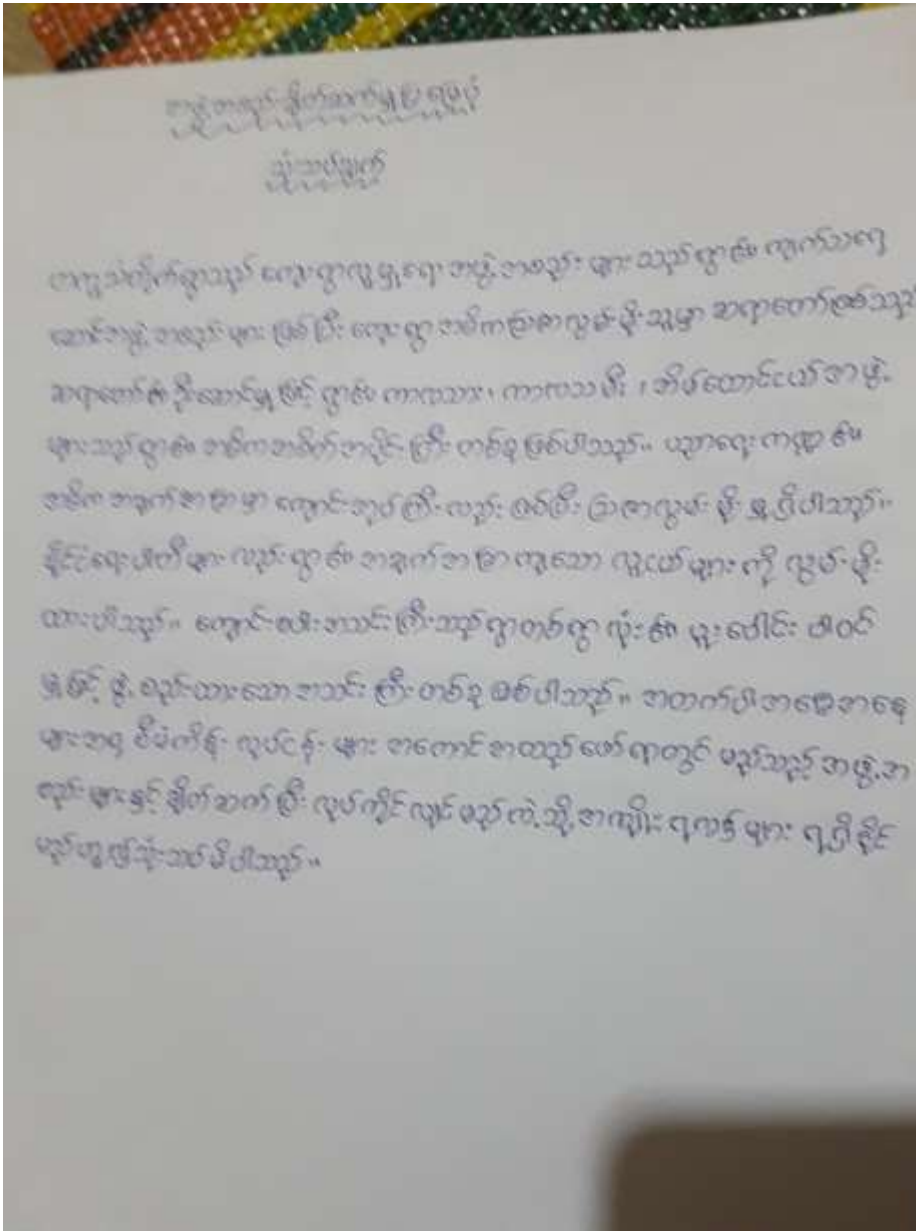 အဖွဲ့အစည်းချိတ်ဆက်မှုပြ ရုပ်ပုံ
သုံးသပ်ချက်
ကျေးရွာလူမှုရေး အဖွဲ့အစည်း များ သည် ရွာ၏ ကျက်သရေ
ဆောင်အဖွဲ့ အစည်း များ ဖြစ် ပြီး ကျေးရွာ အဓိကသြဇာလွှမ်း မိုး သူမှာ ဆရာတော်ဖြစ်သည်
ဆရာတော်၏ ဦးဆောင်မှု ဖြင့် ရွာ၏ ကာလသား၊ ကာလသမီး ၊ အိမ်ထောင်ငယ် အဖွဲ့
များသည် ရွာ၏ အဓိကအစိတ်အပိုင်း ကြီး တစ်ခု ဖြစ်ပါသည်။ ပညာရေး ကဏ္ဍ ၏
အဓိက အချက်အချာမှာ ကျောင်းအုပ် ကြီး လည်း ဖြစ်ပြီး သြဇာလွှမ်း မိုး မှု ရှိပါသည်။
နိုင်ငံရေးပါတီများ လည်း ရွာ၏ အချက်အချာ ကျသော လူငယ် များ ကို လွှမ်း မိုး
ထားပါသည်။ အသင်းကြီးသည် ရွာတစ်ရွာ လုံး ၏ ပူးပေါင်း ပါဝင်
မှုဖြင့် ဖွဲ့ စည်းထားသော အသင်း ကြီး တစ်ခု ဖြစ်ပါသည်။ အထက်ပါ အခြေအနေ
များအရ စီမံကိန်း လုပ်ငန်း များ အကောင်အထည်ဖော် ရာတွင် မည်သည့် အဖွဲ့အ
စည်း များနှင့် ချိတ်ဆက် ပြီး လုပ်ကိုင် လျှင် မည်ကဲ့သို့ အကျိုး ရလဒ် များ ရရှိ နိုင်
မည်ဟူ၍ သုံးသပ် မိပါသည်။